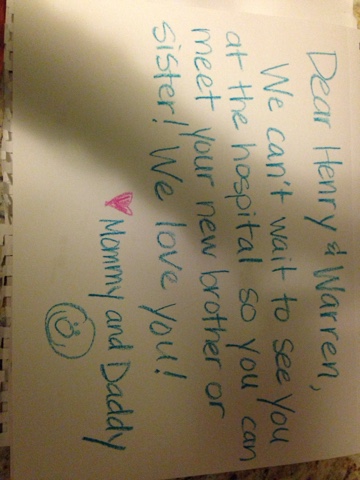 Dear Henry & Warren,
We can't wait to see you
at the hospital so you can
meet your new brother or
sister! We love you!
♥ Mommy and Daddy